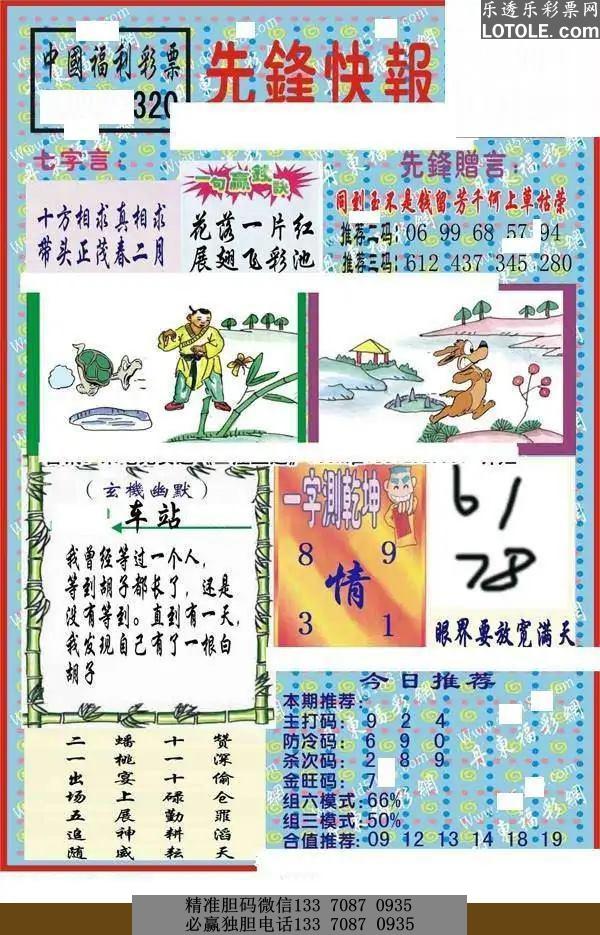 乐透乐彩票网
LOTOLE.COM
中國福利彩票
320
先鋒快報
七字言：
十方相求真相求
带头正茂春二月
一句赢錢訣
花落一片红
展翅飞彩池
先鋒贈言：
同到玉不是钱留 芳千何上草枯荣
推荐二码：06 99 68 57 94
推荐三码：612 437 345 280
（玄機幽默）
车站
我曾经等过一个人，
等到胡子都长了，还是
没有等到。直到有一天，
我发现自己有了一根白
胡子
一字測乾坤
8 9
情
3 1
61
78
眼界要放宽满天
二一出场五追随
蟠桃宴上展神威
十一十碌勤耕耘
赞深偷仓罪滔天
今日推荐
本期推荐：
主打码：9 2 4
防冷码：6 9 0
杀次码：2 8 9
金旺码：7
组六模式：66%
组三模式：50%
合值推荐：09 12 13 14 18 19
丹東福彩網
精准胆码微信133 7087 0935
必赢独胆电话133 7087 0935